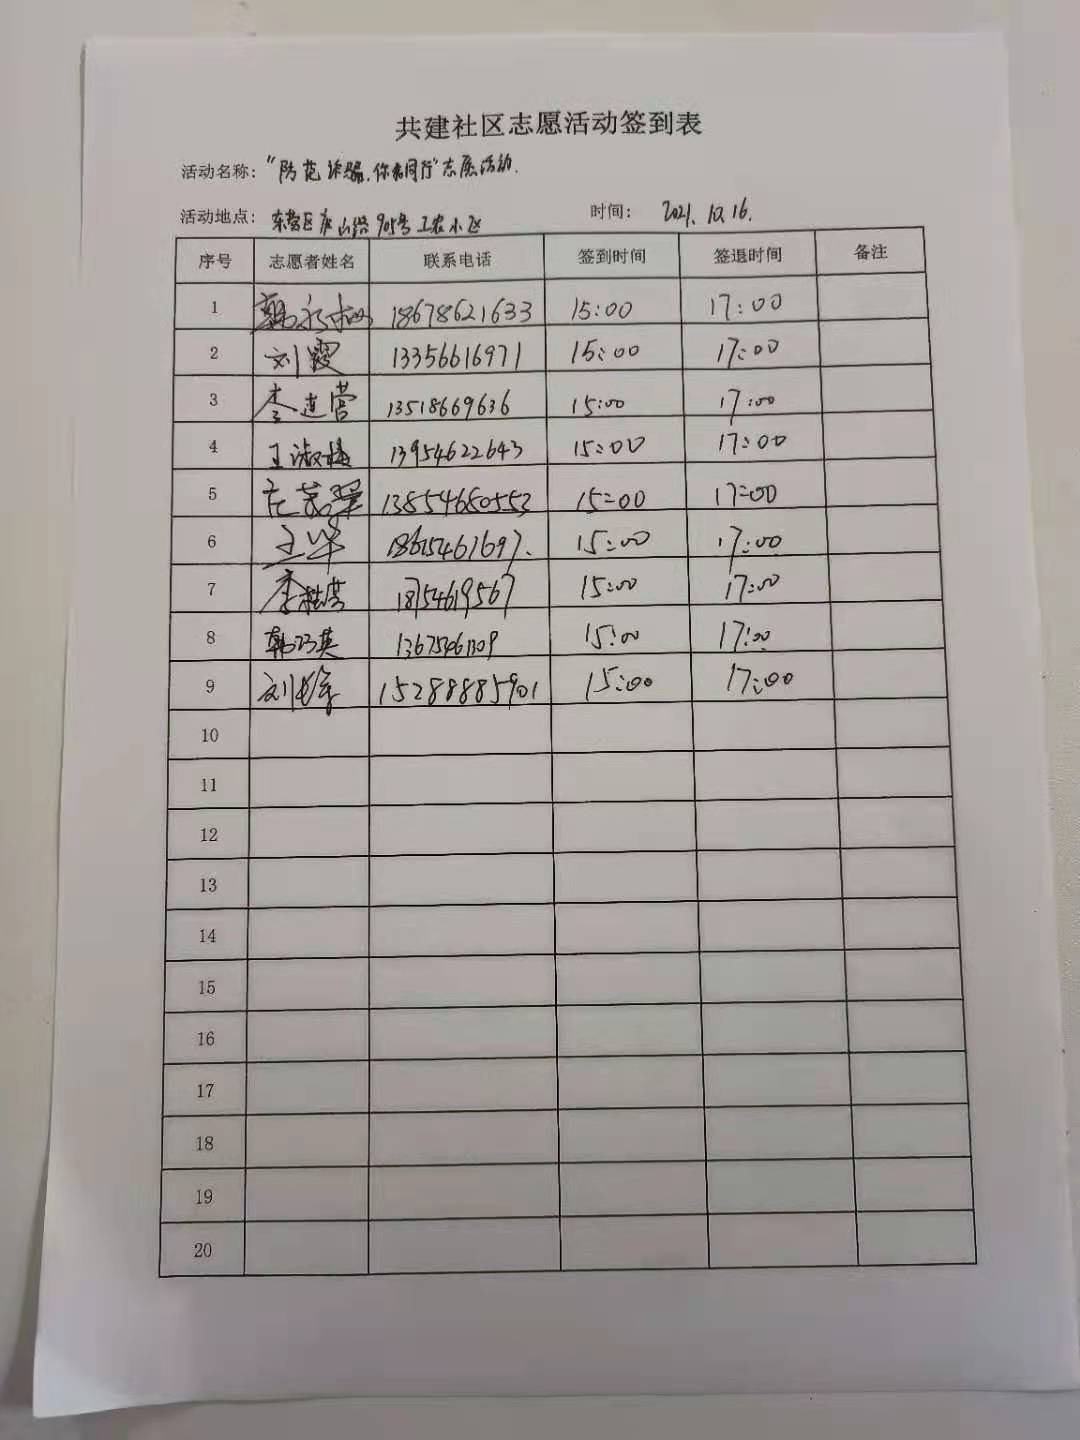 共建社区志愿活动签到表
活动名称："防范诈骗.你我同行"志愿活动.
活动地点：东营区庐山路905号工农小区
时间： 2021.10.16.
序号 志愿者姓名 联系电话 签到时间 签退时间 备注
1 18678621633 15:00 17:00
2 刘霞 13356616971 15:00 17:00
3 李连营 13518669636 15:00 17:00
4 王淑梅 13954622643 15:00 17:00
5 13854680553 15:00 17:00
6 王华 15:00 17:00
7 李桂英 18754619567 15:00 17:00
8 韩巧英 15:00 17:00
9 15288885901 15:00 17:00
10
11
12
13
14
15
16
17
18
19
20